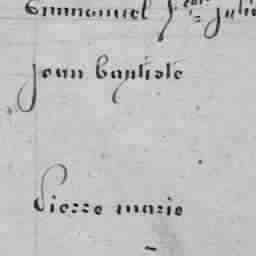 Emmanuel
jean baptiste
Pierre marie